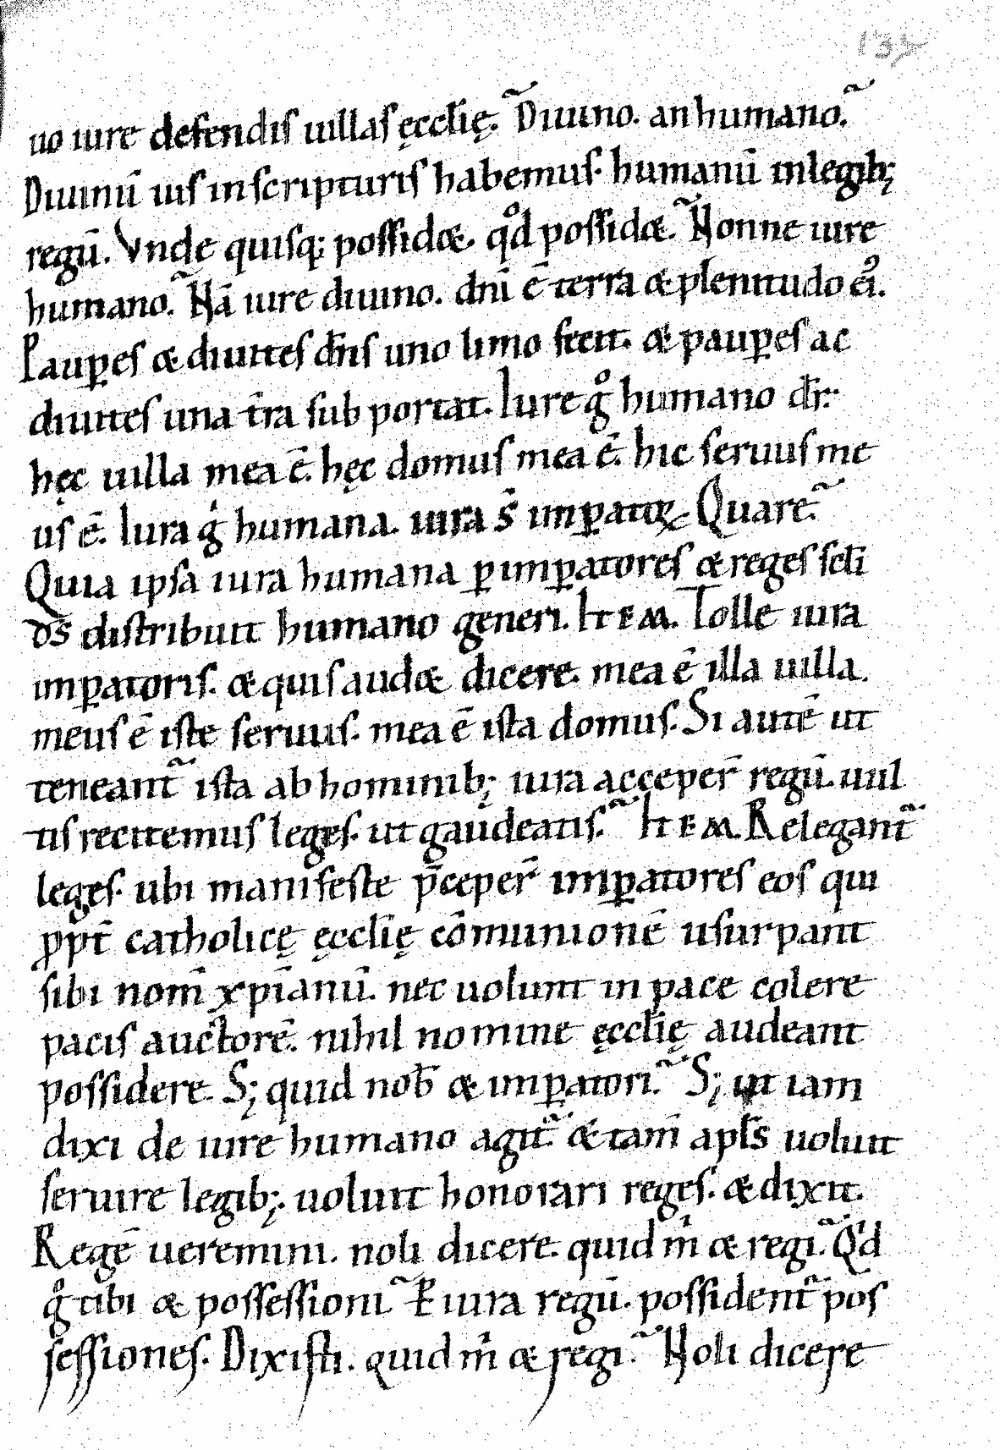 135
uo iure defendis uillas ęccłię. Diuino. an humano.
Diuinū ius in scripturis habemus. humanū in legib;
regū. Vnde quisq; possid&. qd̊ possid&. Nonne iure
humano. Nā iure diuino. dn̄i ē terra & plenitudo ei᾿.
Paup̱es & diuites dn̄s uno limo fecit. & paup̱es ac
diuites una t̄ra sub portat. Iure g̊ humano dr̄.
hęc uilla mea ē. hęc domus mea ē. hic seruus me
us ē. Iura g̊ humana. iura s̄ imp̱atoꝝ. Quare.
Quia ipsa iura humana p̱ imp̱atores & reges scłi
ds̄ distribuit humano generi. ITEM. Tolle iura
imp̱atoris. & quis aud& dicere. mea ē illa uilla.
meus ē iste seruus. mea ē ista domus. Si autē ut
teneant᷑ ista ab hominib; iura acceper̄ regū. uul
tis recitemus leges. ut gaudeatis. ITEM. Relegant᷑
leges. ubi manifeste p̄ceper̄ imp̱atores eos qui
ꝓpt̄ catholicę ęccłię cōmunionē usurpant
sibi nom̄ xp̄ianū. nec uolunt in pace colere
pacis auctorē. nihil nomine ęccłię audeant
possidere. S; quid nob̄ & imp̱atori. S; ut iam
dixi de iure humano agit᷑. & tam̄ apłs uoluit
seruire legib;. uoluit honorari reges. & dixit.
Regē ueremini. noli dicere. quid m̊ & regi. Qd̊
g̊ tibi & possessioni. P̱ iura regū. possident᷑ pos
sessiones. Dixisti. quid m̊ & regi. Noli dicere